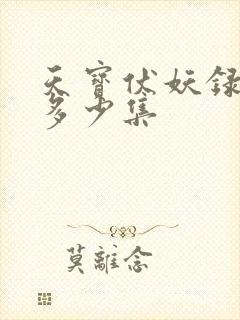 天寳伏妖録
多少集
莫離念